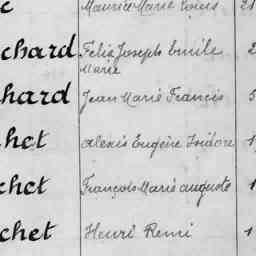 Maurice Marie Louis 21
chard Felix Joseph Emile 2
Marie
hard Jean Marie Francis 5
het Alexis Eugène Isidore 1
chet François Marie Auguste 1
chet Henri Remi 1